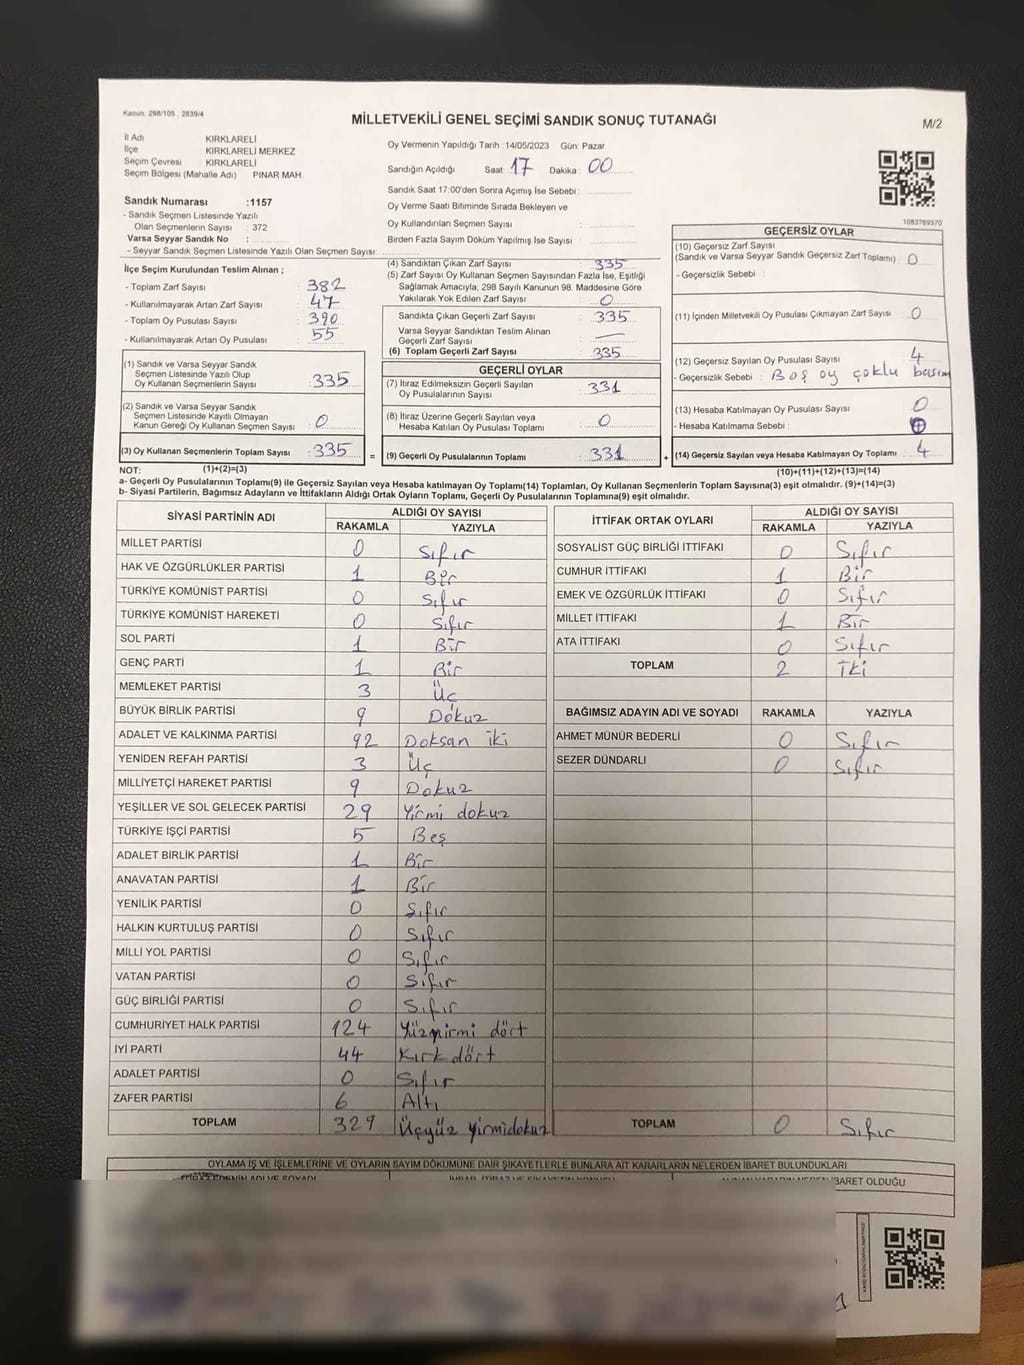 Kanun. 298/105 , 2839/4
MİLLETVEKİLİ GENEL SEÇİMİ SANDIK SONUÇ TUTANAĞI
M/2
İl Adı KIRKLARELİ
İlçe KIRKLARELİ MERKEZ
Seçim Çevresi : KIRKLARELİ
Seçim Bölgesi (Mahalle Adı) PINAR MAH.
Sandık Numarası :1157
- Sandık Seçmen Listesinde Yazılı
Olan Seçmenlerin Sayısı : 372
Varsa Seyyar Sandık No :
- Seyyar Sandık Seçmen Listesinde Yazılı Olan Seçmen Sayısı:
Oy Vermenin Yapıldığı Tarih :14/05/2023 Gün: Pazar
Sandığın Açıldığı Saat: 17 Dakika: 00
Sandık Saat 17:00'den Sonra Açımış İse Sebebi:
Oy Verme Saati Bitiminde Sırada Bekleyen ve
Oy Kullandırılan Seçmen Sayısı :
Birden Fazla Sayım Döküm Yapılmış İse Sayısı :
1083769370
İlçe Seçim Kurulundan Teslim Alınan ;
- Toplam Zarf Sayısı : 382
- Kullanılmayarak Artan Zarf Sayısı : 47
- Toplam Oy Pusulası Sayısı : 390
- Kullanılmayarak Artan Oy Pusulası : 55
(1) Sandık ve Varsa Seyyar Sandık
Seçmen Listesinde Yazılı Olup
Oy Kullanan Seçmenlerin Sayısı : 335
(2) Sandık ve Varsa Seyyar Sandık
Seçmen Listesinde Kayıtlı Olmayan
Kanun Gereği Oy Kullanan Seçmen Sayısı : 0
(3) Oy Kullanan Seçmenlerin Toplam Sayısı : 335
(1)+(2)=(3)
(4) Sandıktan Çıkan Zarf Sayısı : 335
(5) Zarf Sayısı Oy Kullanan Seçmen Sayısından Fazla İse, Eşitliği
Sağlamak Amacıyla, 298 Sayılı Kanunun 98. Maddesine Göre
Yakılarak Yok Edilen Zarf Sayısı : 0
Sandıkta Çıkan Geçerli Zarf Sayısı : 335
Varsa Seyyar Sandıktan Teslim Alınan
Geçerli Zarf Sayısı : —
(6) Toplam Geçerli Zarf Sayısı : 335
GEÇERLİ OYLAR
(7) İtiraz Edilmeksizin Geçerli Sayılan
Oy Pusulalarının Sayısı : 331
(8) İtiraz Üzerine Geçerli Sayılan veya
Hesaba Katılan Oy Pusulası Toplamı : 0
= (9) Geçerli Oy Pusulalarının Toplamı : 331 +
GEÇERSİZ OYLAR
(10) Geçersiz Zarf Sayısı
(Sandık ve Varsa Seyyar Sandık Geçersiz Zarf Toplamı) : 0
- Geçersizlik Sebebi :
(11) İçinden Milletvekili Oy Pusulası Çıkmayan Zarf Sayısı : 0
(12) Geçersiz Sayılan Oy Pusulası Sayısı : 4
- Geçersizlik Sebebi : Boş oy çoklu basım
(13) Hesaba Katılmayan Oy Pusulası Sayısı : 0
- Hesaba Katılmama Sebebi :
(14) Geçersiz Sayılan veya Hesaba Katılmayan Oy Toplamı : 4
(10)+(11)+(12)+(13)=(14)
NOT:
a- Geçerli Oy Pusulalarının Toplamı(9) ile Geçersiz Sayılan veya Hesaba katılmayan Oy Toplamı(14) Toplamları, Oy Kullanan Seçmenlerin Toplam Sayısına(3) eşit olmalıdır. (9)+(14)=(3)
b- Siyasi Partilerin, Bağımsız Adayların ve İttifakların Aldığı Ortak Oyların Toplamı, Geçerli Oy Pusulalarının Toplamına(9) eşit olmalıdır.
SİYASİ PARTİNİN ADI ALDIĞI OY SAYISI
RAKAMLA YAZIYLA
MİLLET PARTİSİ 0 Sıfır
HAK VE ÖZGÜRLÜKLER PARTİSİ 1 Bir
TÜRKİYE KOMÜNİST PARTİSİ 0 Sıfır
TÜRKİYE KOMÜNİST HAREKETİ 0 Sıfır
SOL PARTİ 1 Bir
GENÇ PARTİ 1 Bir
MEMLEKET PARTİSİ 3 Üç
BÜYÜK BİRLİK PARTİSİ 9 Dokuz
ADALET VE KALKINMA PARTİSİ 92 Doksan iki
YENİDEN REFAH PARTİSİ 3 Üç
MİLLİYETÇİ HAREKET PARTİSİ 9 Dokuz
YEŞİLLER VE SOL GELECEK PARTİSİ 29 Yirmi dokuz
TÜRKİYE İŞÇİ PARTİSİ 5 Beş
ADALET BİRLİK PARTİSİ 1 Bir
ANAVATAN PARTİSİ 1 Bir
YENİLİK PARTİSİ 0 Sıfır
HALKIN KURTULUŞ PARTİSİ 0 Sıfır
MİLLİ YOL PARTİSİ 0 Sıfır
VATAN PARTİSİ 0 Sıfır
GÜÇ BİRLİĞİ PARTİSİ 0 Sıfır
CUMHURİYET HALK PARTİSİ 124 Yüzyirmi dört
İYİ PARTİ 44 Kırk dört
ADALET PARTİSİ 0 Sıfır
ZAFER PARTİSİ 6 Altı
TOPLAM 329 Üçyüz yirmidokuz
İTTİFAK ORTAK OYLARI ALDIĞI OY SAYISI
RAKAMLA YAZIYLA
SOSYALİST GÜÇ BİRLİĞİ İTTİFAKI 0 Sıfır
CUMHUR İTTİFAKI 1 Bir
EMEK VE ÖZGÜRLÜK İTTİFAKI 0 Sıfır
MİLLET İTTİFAKI 1 Bir
ATA İTTİFAKI 0 Sıfır
TOPLAM 2 İki
BAĞIMSIZ ADAYIN ADI VE SOYADI RAKAMLA YAZIYLA
AHMET MÜNÜR BEDERLİ 0 Sıfır
SEZER DÜNDARLI 0 Sıfır
TOPLAM 0 Sıfır
OYLAMA İŞ VE İŞLEMLERİNE VE OYLARIN SAYIM DÖKÜMÜNE DAİR ŞİKAYETLERLE BUNLARA AİT KARARLARIN NELERDEN İBARET BULUNDUKLARI
İBARET OLDUĞU